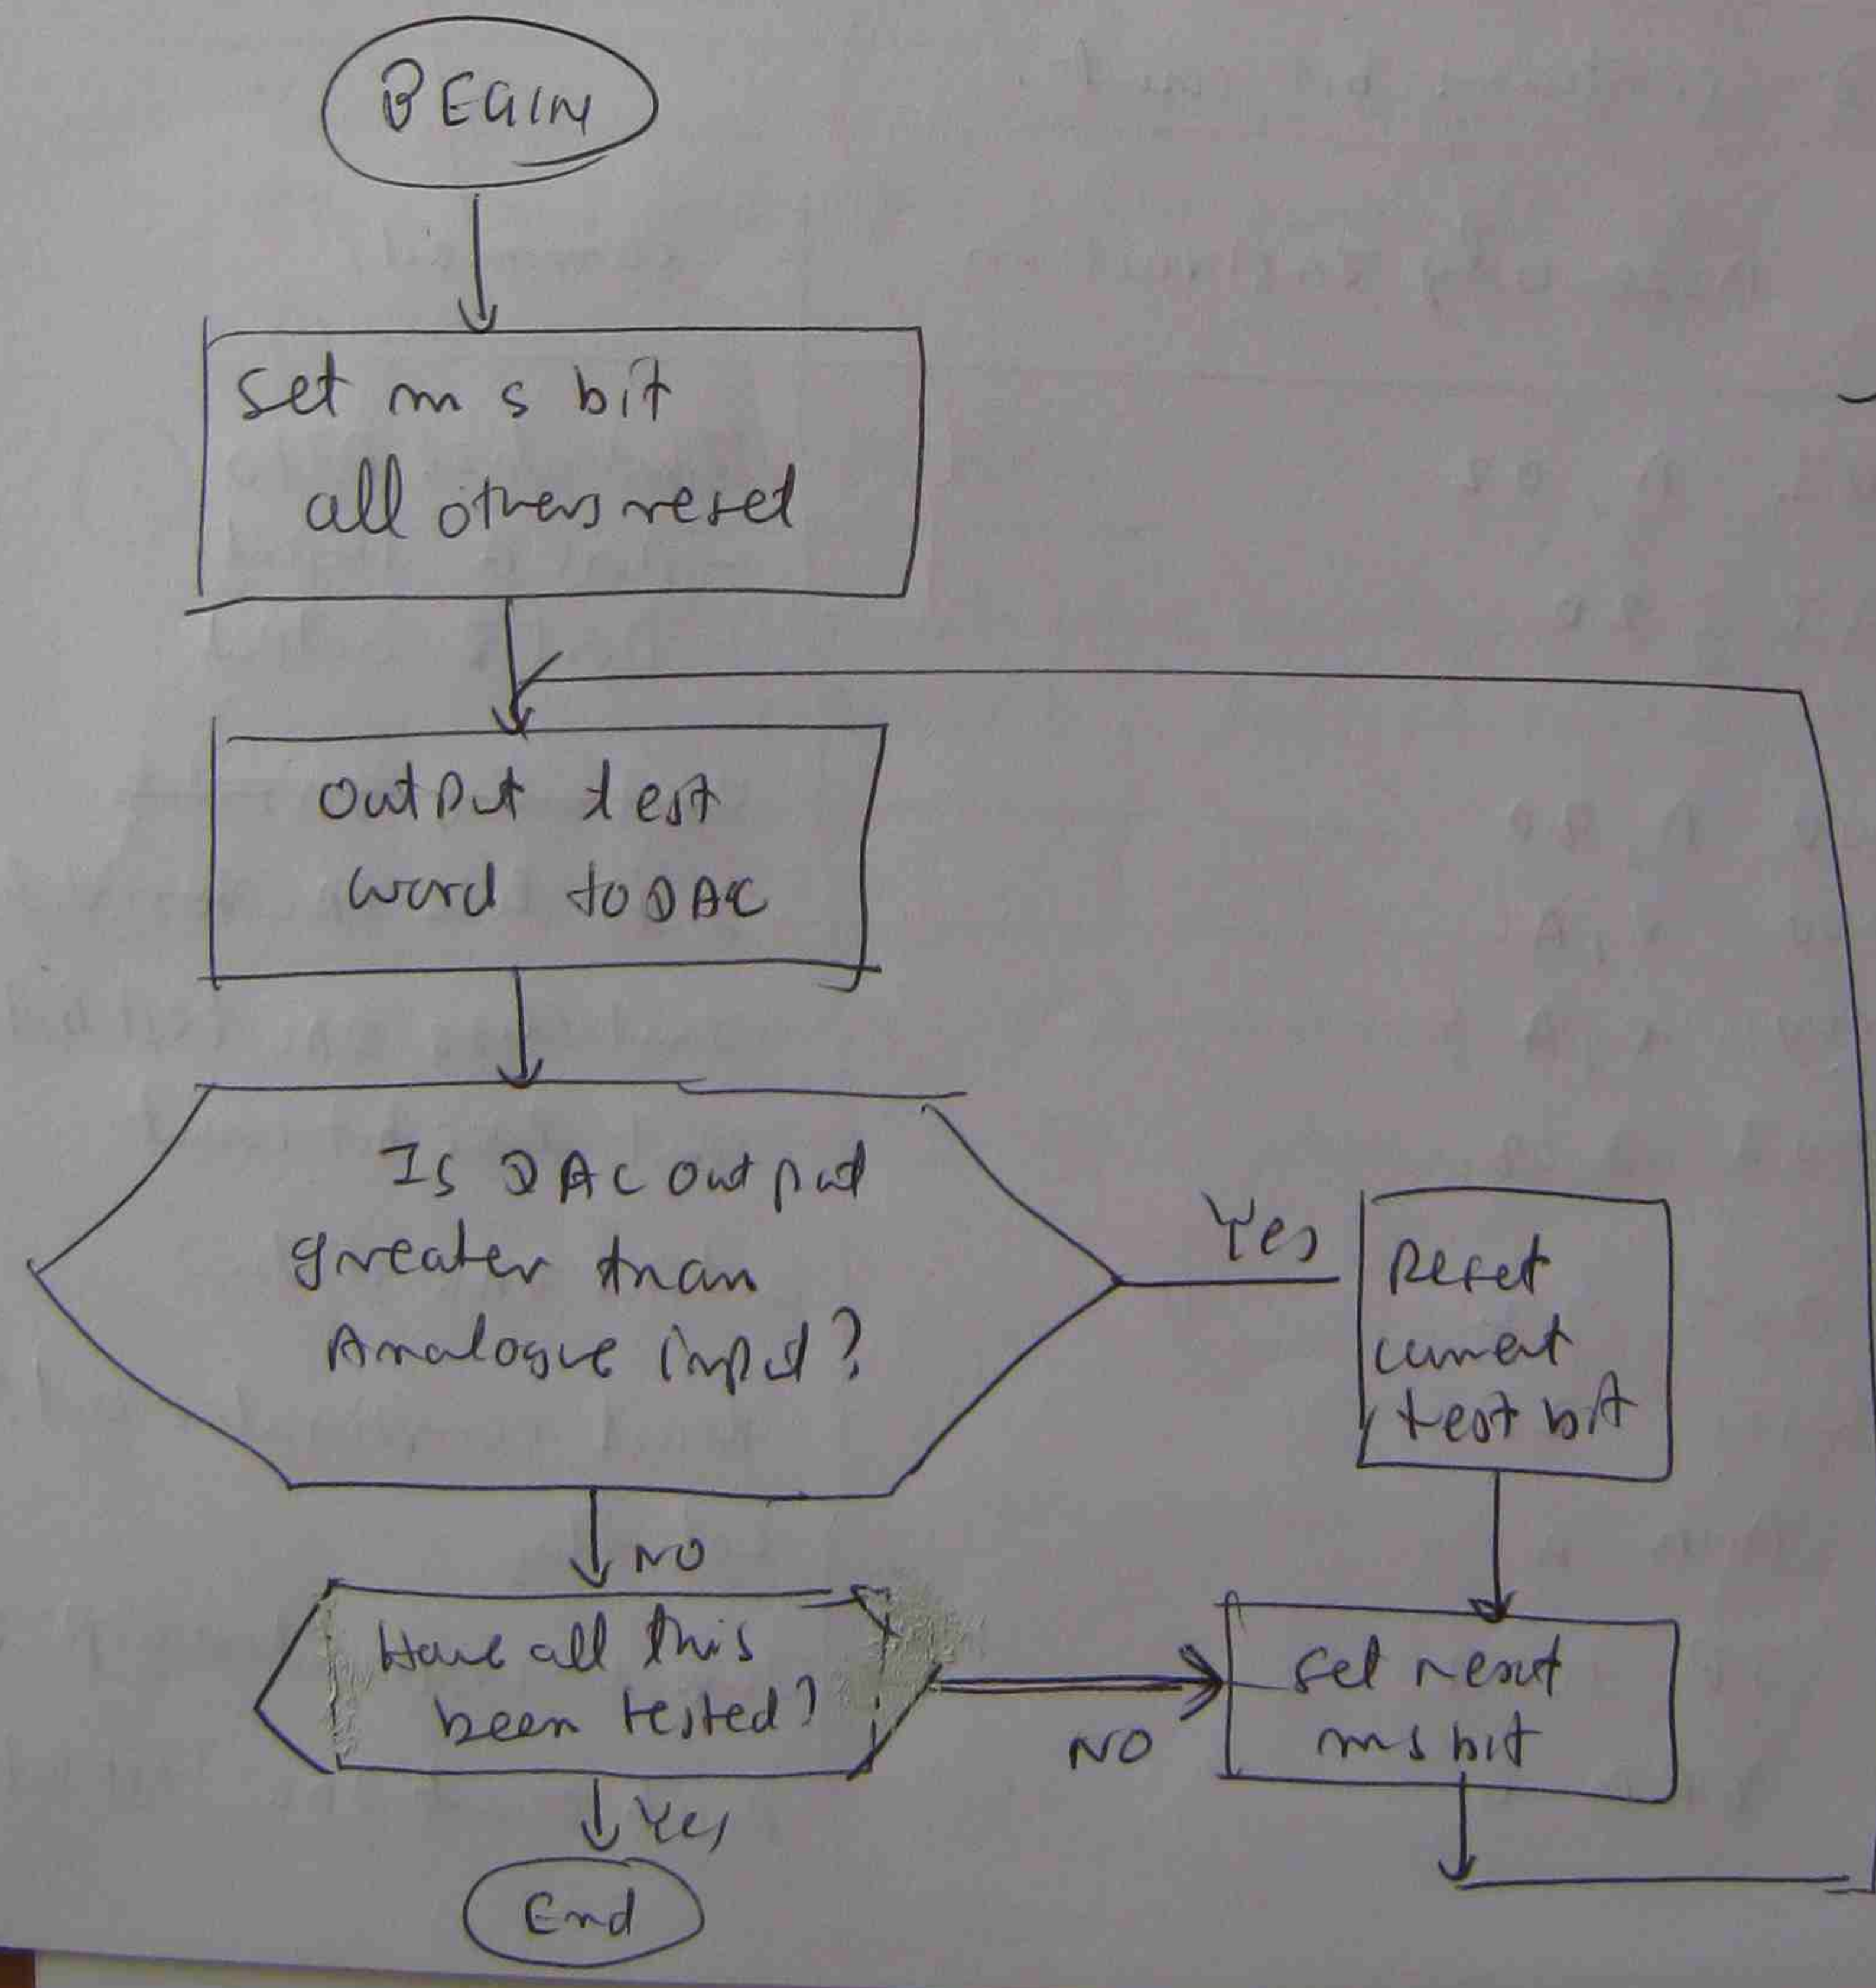 BEGIN
set m s bit
all others reset
output test
word to DAC
Is DAC output
greater than
Analogue input?
Yes
Reset
current
test bit
NO
Have all this
been tested?
NO
set next
ms bit
Yes
End